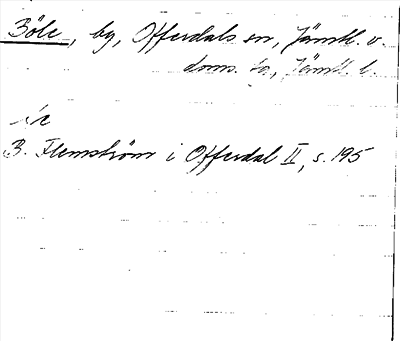 Böle, by, Offerdals sn, Jämtl. v.
doms. la, Jämtl. l.
B. Flemström i Offerdal II, s. 195